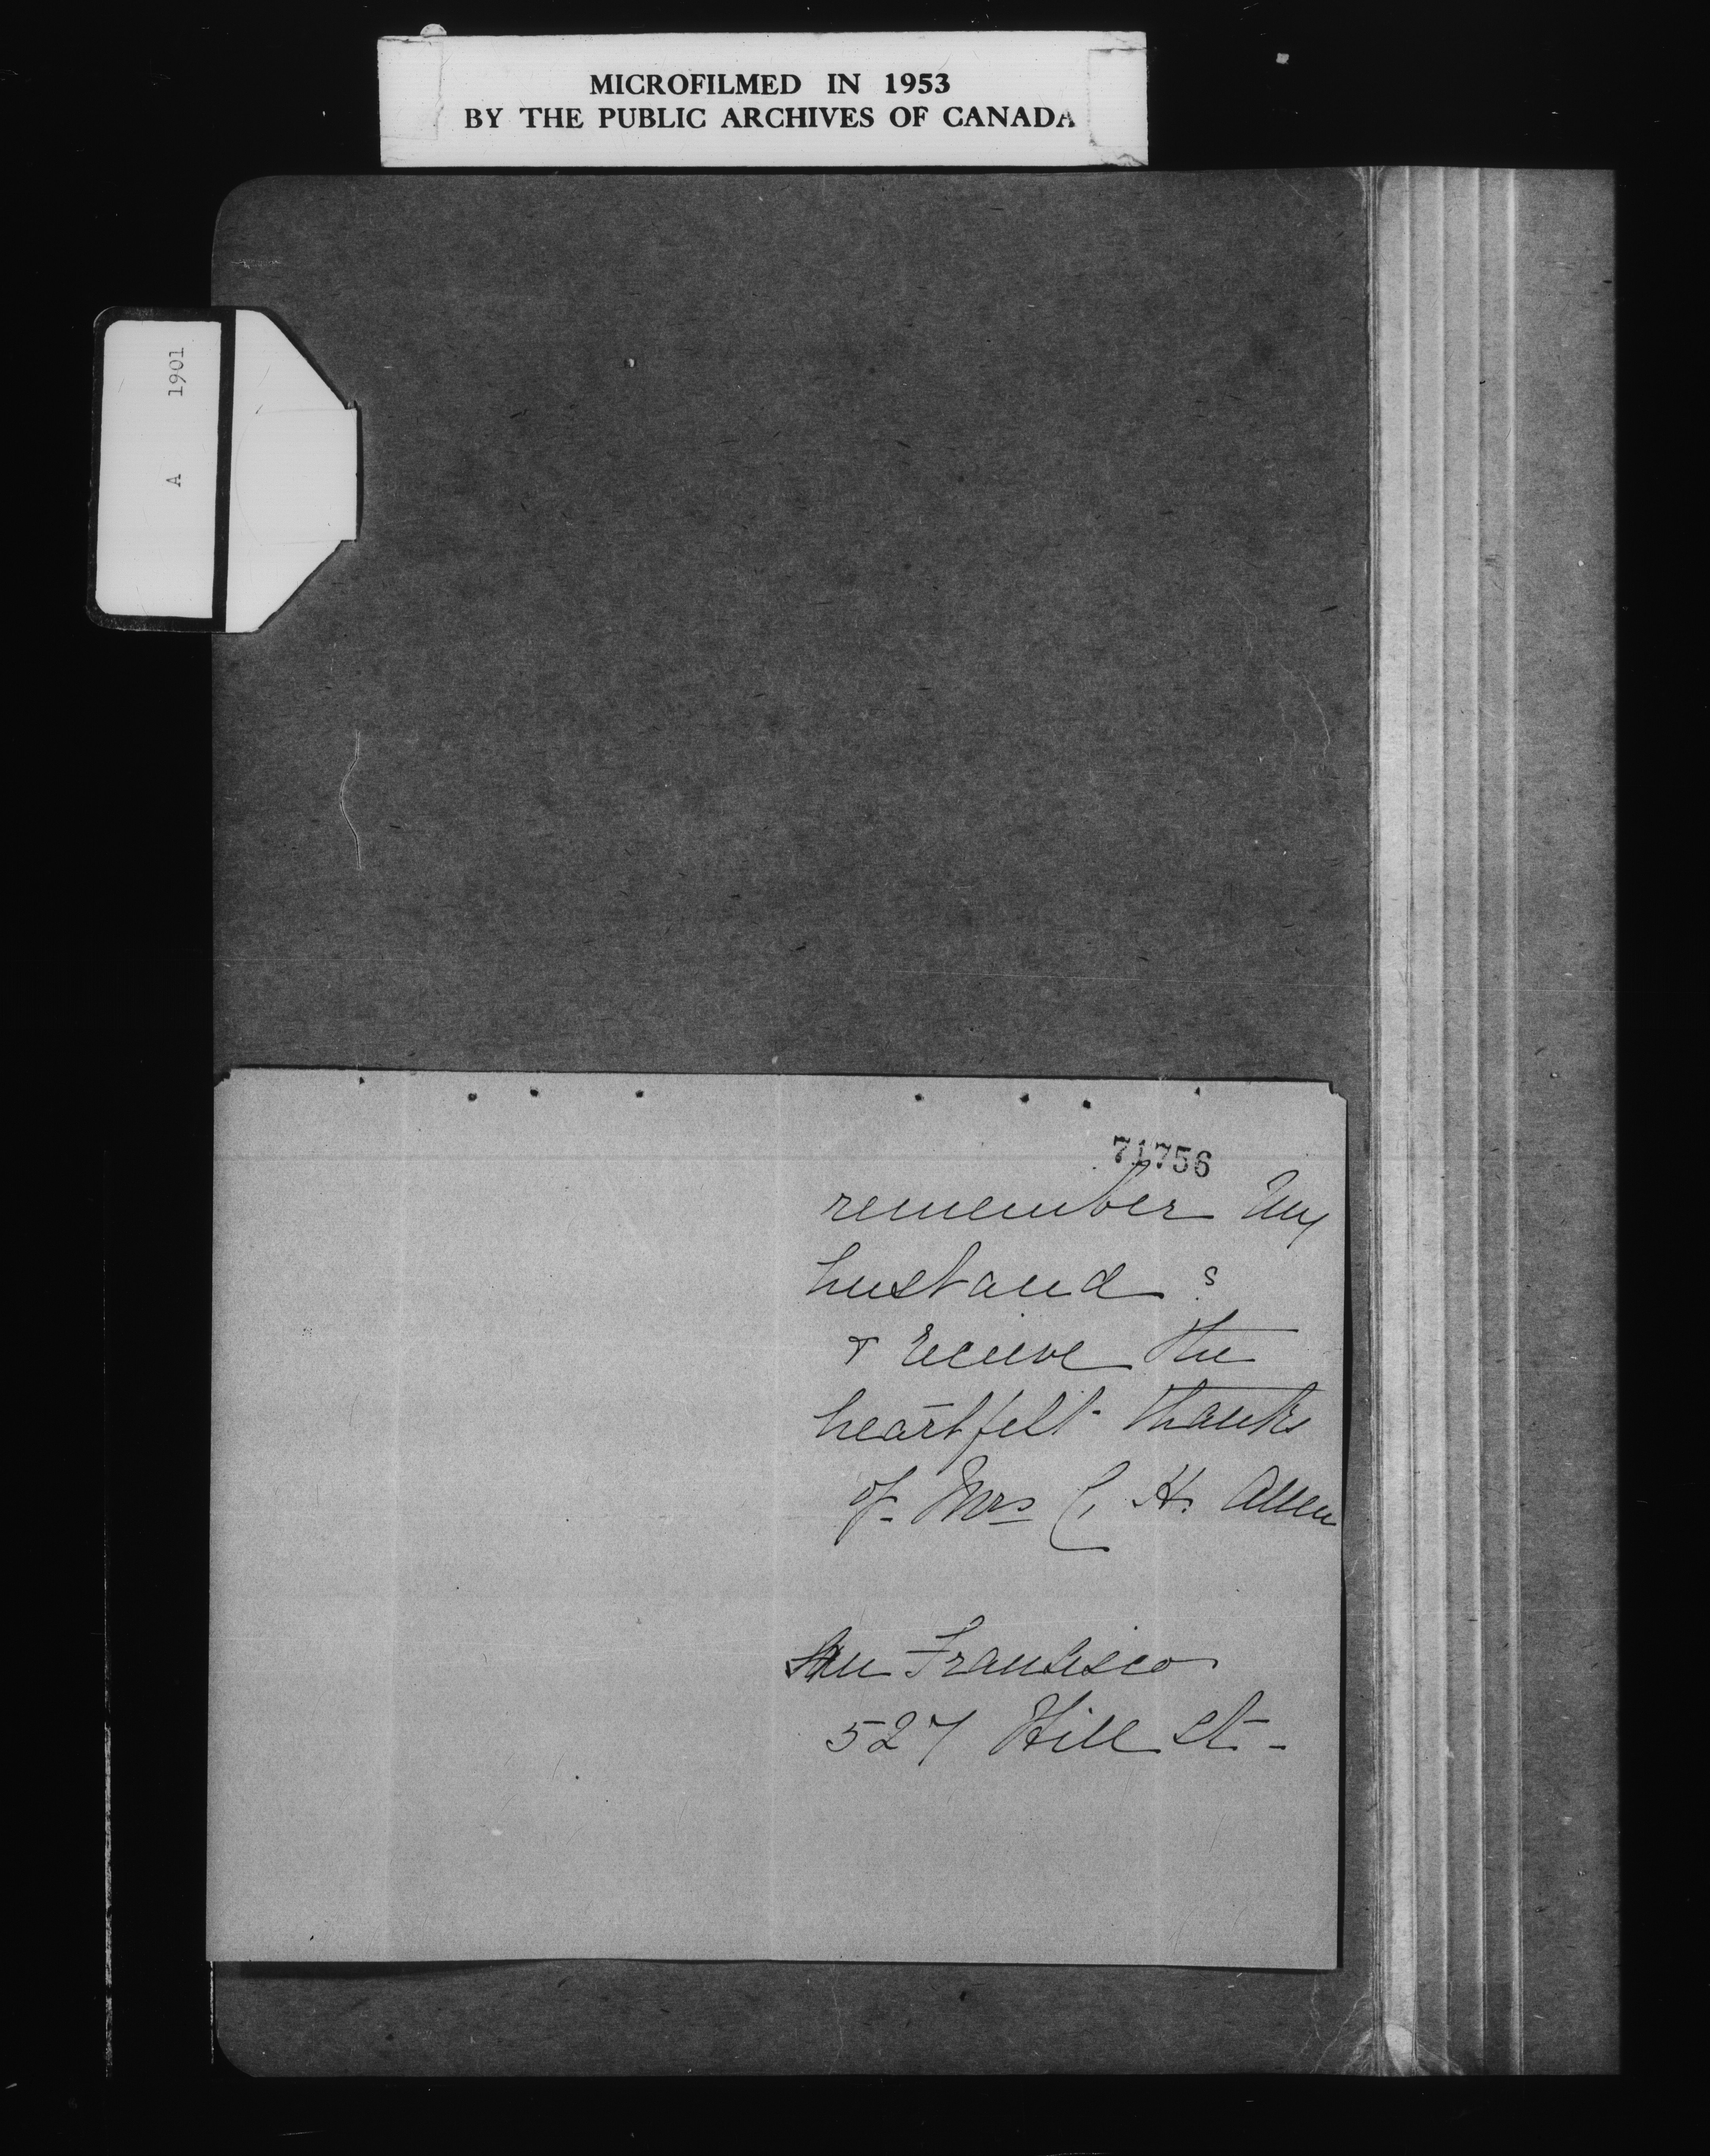 MICROFILMED IN 1953
BY THE PUBLIC ARCHIVES OF CANADA
A 1901
71756
remember my
husband s
& recieve the
heartfelt thanks
of Mrs C. H. Allen
San Francisco
527 Hill St-